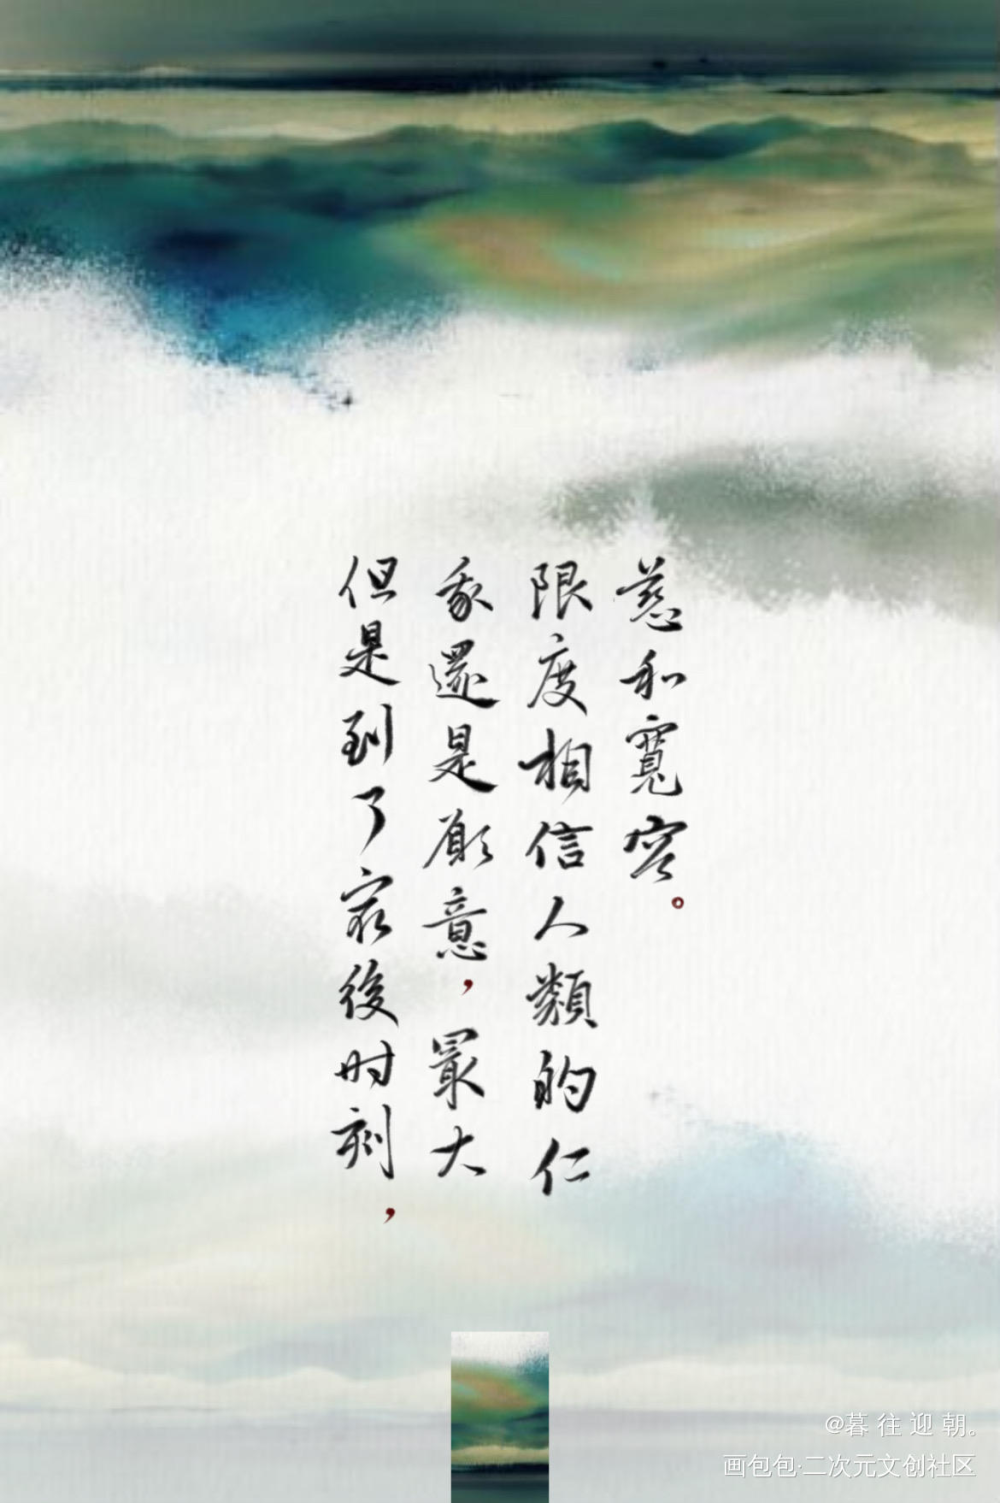 但是到了最後时刻，
我還是願意，最大
限度相信人類的仁
慈和寬容。
@暮往迎朝。
画包包·二次元文创社区